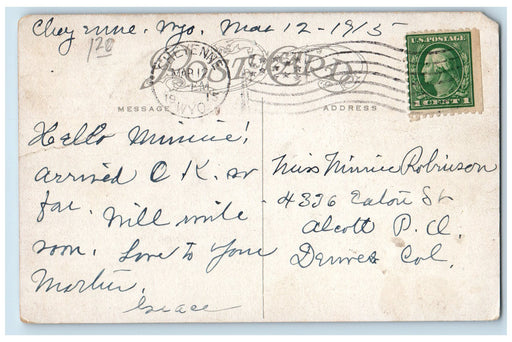 Cheyenne, Wyo, Mar 12-1915
120
POST CARD
CHEYENNE
MAR 12
PM
1915
WYO
U.S. POSTAGE
1 CENT 1
MESSAGE
ADDRESS
Hello Minnie!
arrived O.K. so
far. Will write
soon. Love to your
Mother.
Grace
Miss Minnie Robinson
4326 Eaton St
Alcott P.O.
Denver Col.